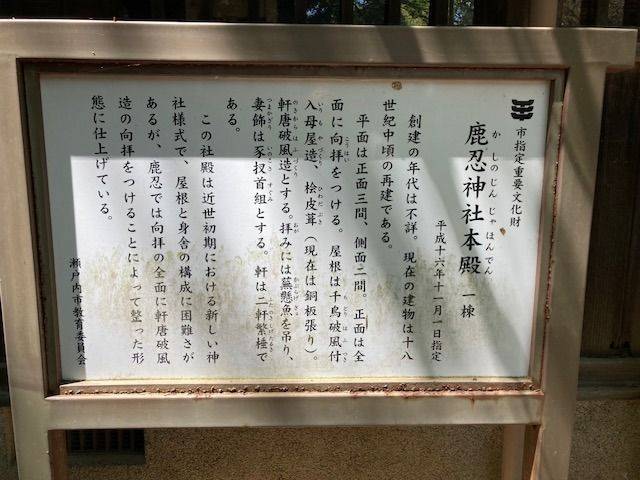 市指定重要文化財
鹿忍神社本殿 一棟
かしのじんじゃほんでん
平成十六年十一月一日指定
創建の年代は不詳。現在の建物は十八
世紀中頃の再建である。
平面は正面三間、側面二間。正面は全
面に向拝をつける。屋根は千鳥破風付
入母屋造、桧皮葺(現在は銅板張り)。
軒唐破風造とする。拝みには蕪懸魚を吊り、
妻飾は豕扠首組とする。軒は二軒繁棰で
ある。
この社殿は近世初期における新しい神
社様式で、屋根と身舎の構成に困難さが
あるが、鹿忍では向拝の全面に軒唐破風
造の向拝をつけることによって整った形
態に仕上げている。
瀬戸内市教育委員会